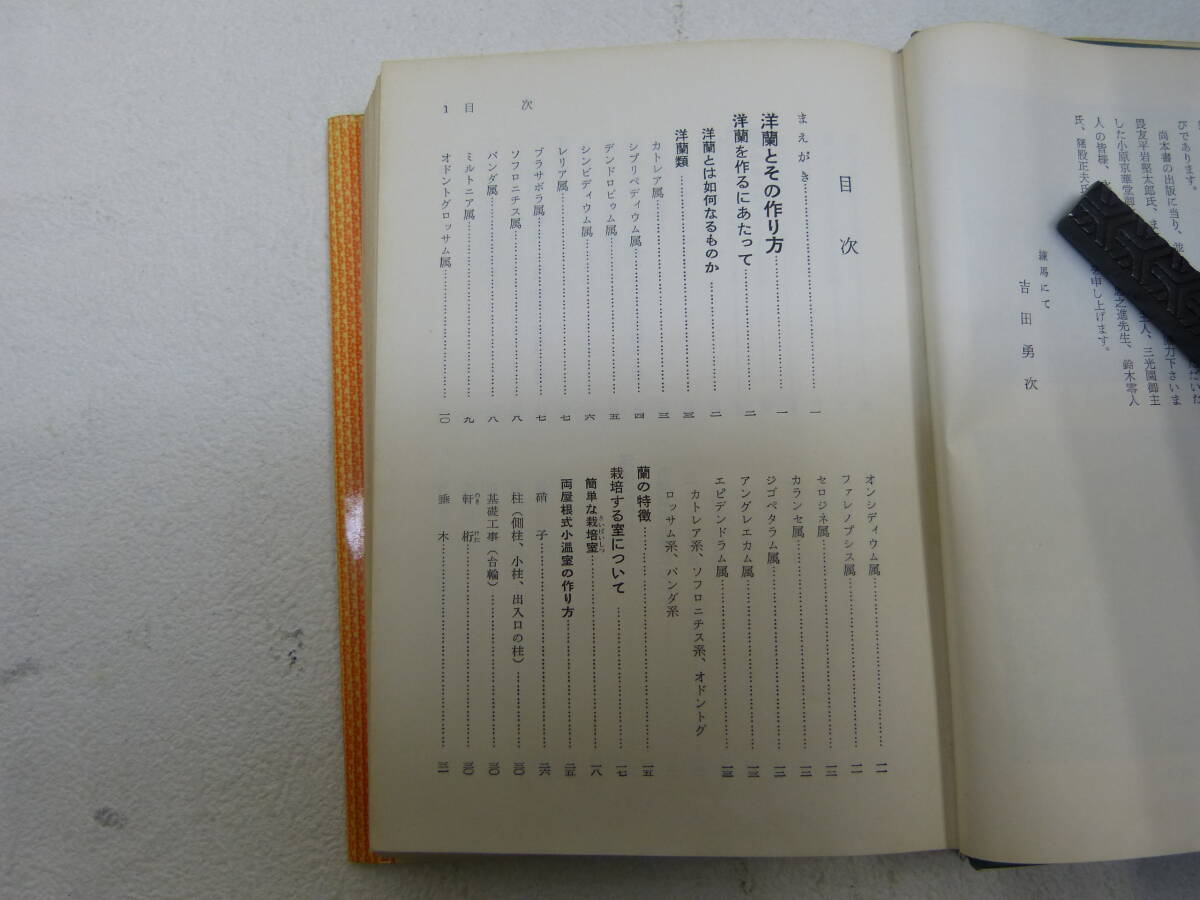 びであります。
尚本書の出版に当り、並
畏友平岩堅太郎氏、ま
した小原京華堂御
人の皆様、
氏、猪股正夫氏
力下さいま
主人、三光園御主
之進先生、鈴木零人
申し上げます。
練馬にて
吉田勇次
目次
まえがき……一
洋蘭とその作り方……一
洋蘭を作るにあたって……二
洋蘭とは如何なるものか……二
洋蘭類……三
カトレア属……三
シプリペディウム属……四
デンドロビゥム属……五
シンビディウム属……六
レリア属……七
ブラサボラ属……七
ソフロニチス属……八
バンダ属……八
ミルトニア属……九
オドントグロッサム属……一〇
オンシディウム属……一一
ファレノプシス属……一一
セロジネ属……一二
カランセ属……一二
ジゴペタラム属……一二
アングレエカム属……一三
エピデンドラム属……一三
カトレア系、ソフロニチス系、オドントグ
ロッサム系、バンダ系
蘭の特徴……一五
栽培する室について……一七
簡単な栽培室……一八
さいばいしつ
両屋根式小温室の作り方……二五
硝子……二六
柱(側柱、小柱、出入口の柱)……三〇
基礎工事(台輪)……三〇
軒桁……三〇
のきけた
垂木……三一
1 目次